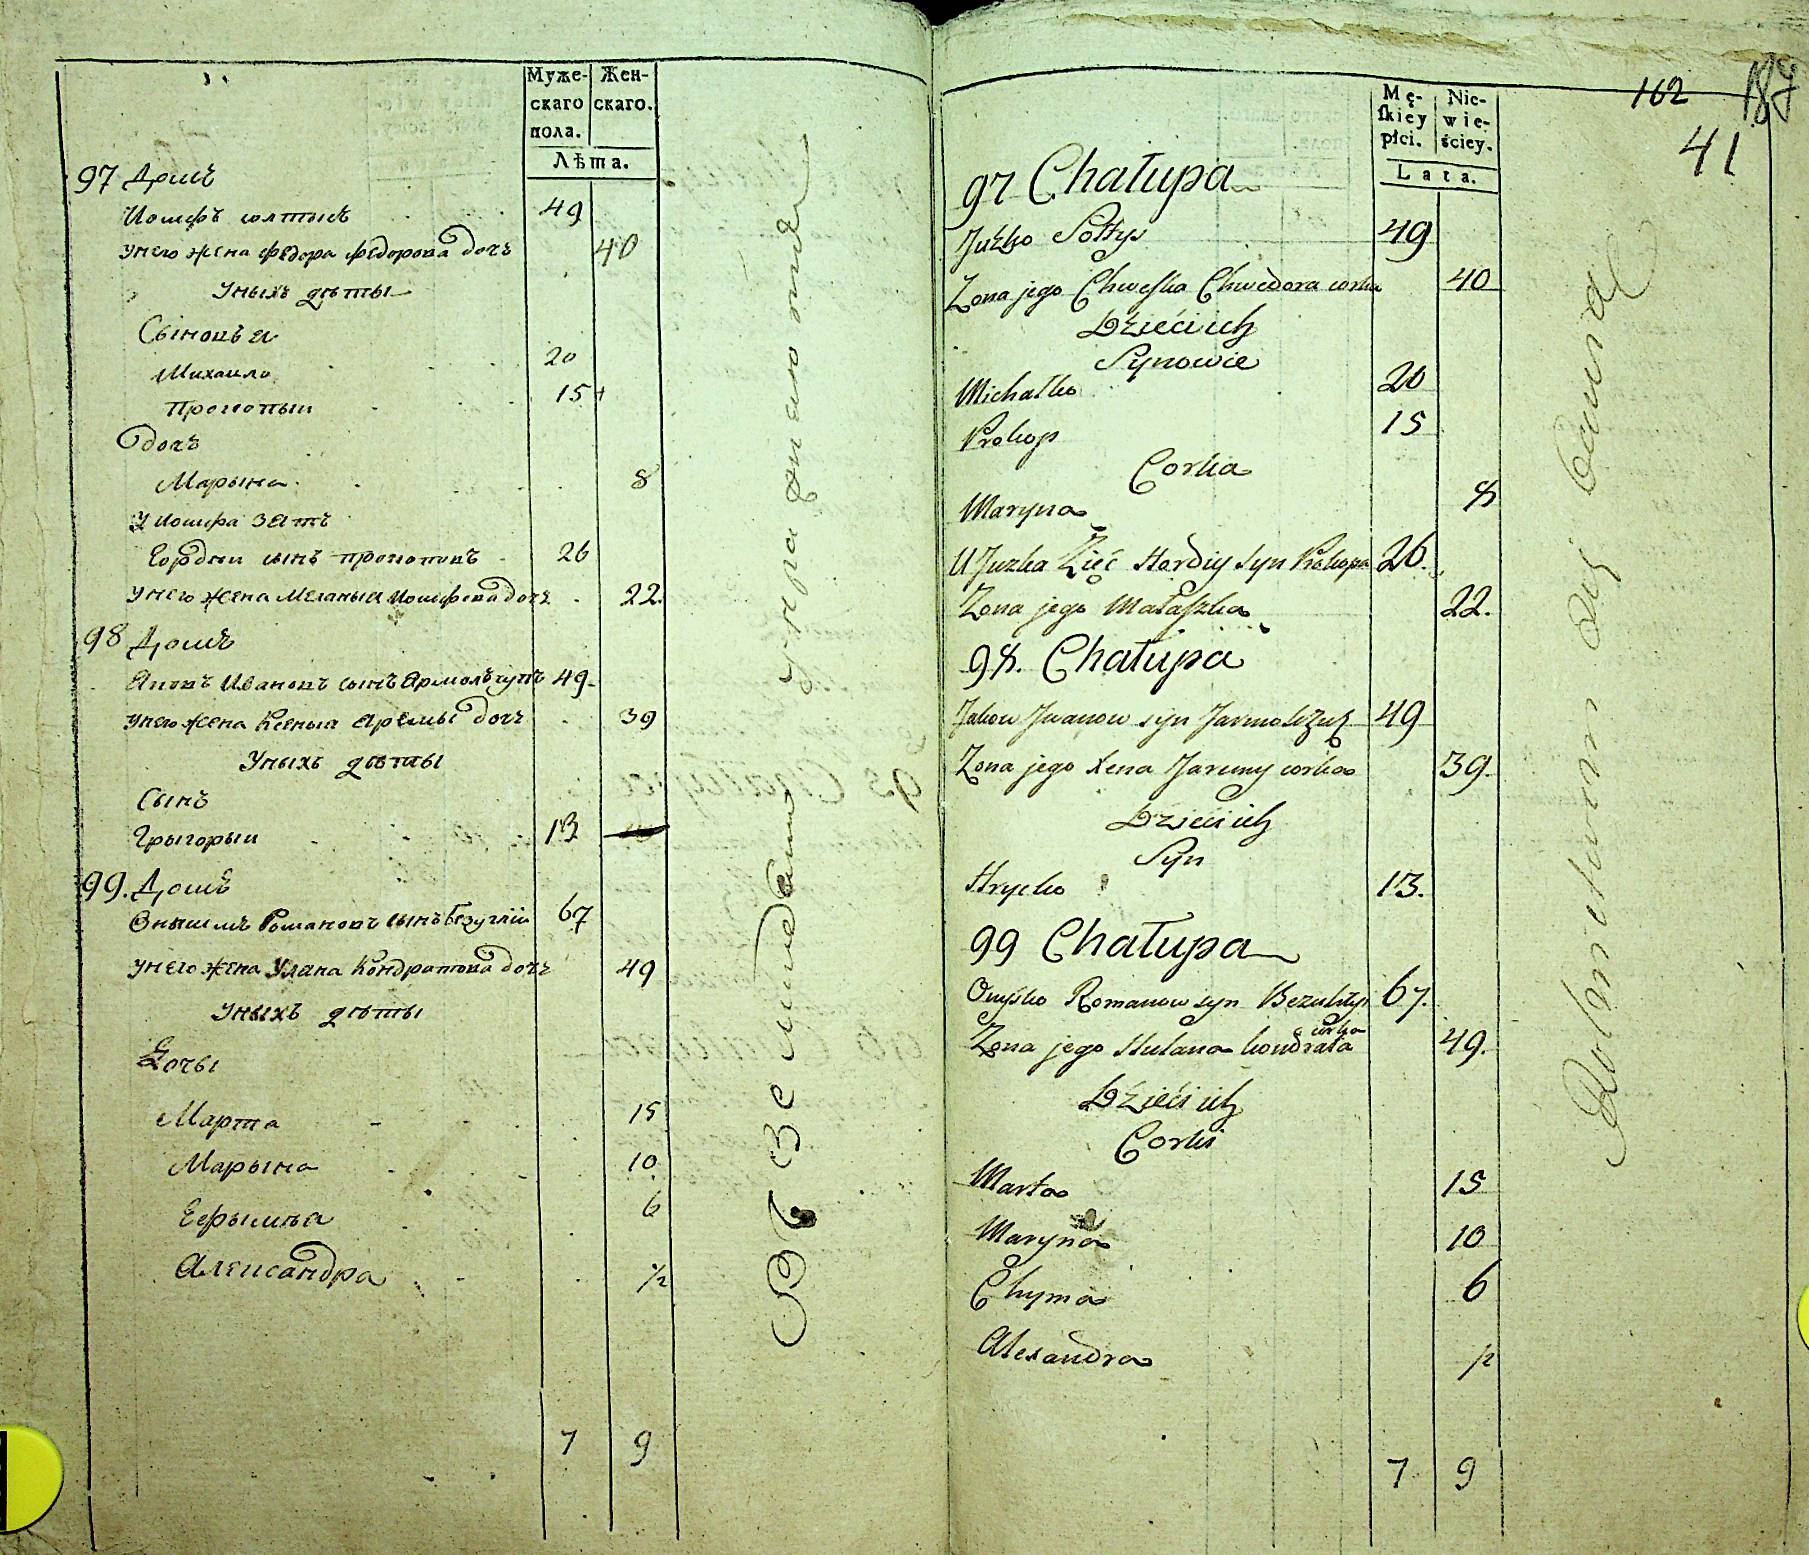 Муже-
скаго
пола.
Жен-
скаго.
Лѣта.
97 Домъ
Иосифъ солтысъ 49
у него жена Федора Федорова дочь 40
у ныхъ дѣты
Сыновья
Михаило 20
Прокопыи 15
дочь
Марына 8
у Иосифа зять
Гордѣи сынъ прокоповъ 26
у него жена Меланыя Иосифова дочь 22.
98 Домъ
Яковъ Ивановъ сынъ Ярмолъчукъ 49
у него жена Ксеныя Яремы дочь 39
у ныхъ дѣты
Сынъ
Грыгорыи 13
99. Домъ
Онысимъ Романовъ сынъ Безуглїи 67
у него жена Улана Кондратова дочь 49
у ныхъ дѣты
Дочы
Марта 15
Марына 10
Ефрыми́я 6
Александра ½
7 9
162
41
Mę-
ſkiey
płci.
Nie-
wie-
ściey.
Lata.
97 Chałupa
Juzko Sołtys 49
Zona jego Chweſka Chwedora corka 40
Dzieci ich
Synowie
Michałko 20
Prokop 15
Corka
Maryna 8
U Juzka Zięć Hordiy syn Prokopa 26.
Zona jego Małaſzka 22.
98. Chałupa
Jakow Jwanow syn Jarmolczuk 49
Zona jego Xena Jaremy corka 39.
Dzieci ich
Syn
Hrycko 13.
99 Chałupa
Onysko Romanow syn Bezuhły 67.
Zona jego Hulana kondrata corka 49.
Dzieci ich
Corki
Marta 15
Maryna 10
Chyma 6
Alexandra ½
7 9